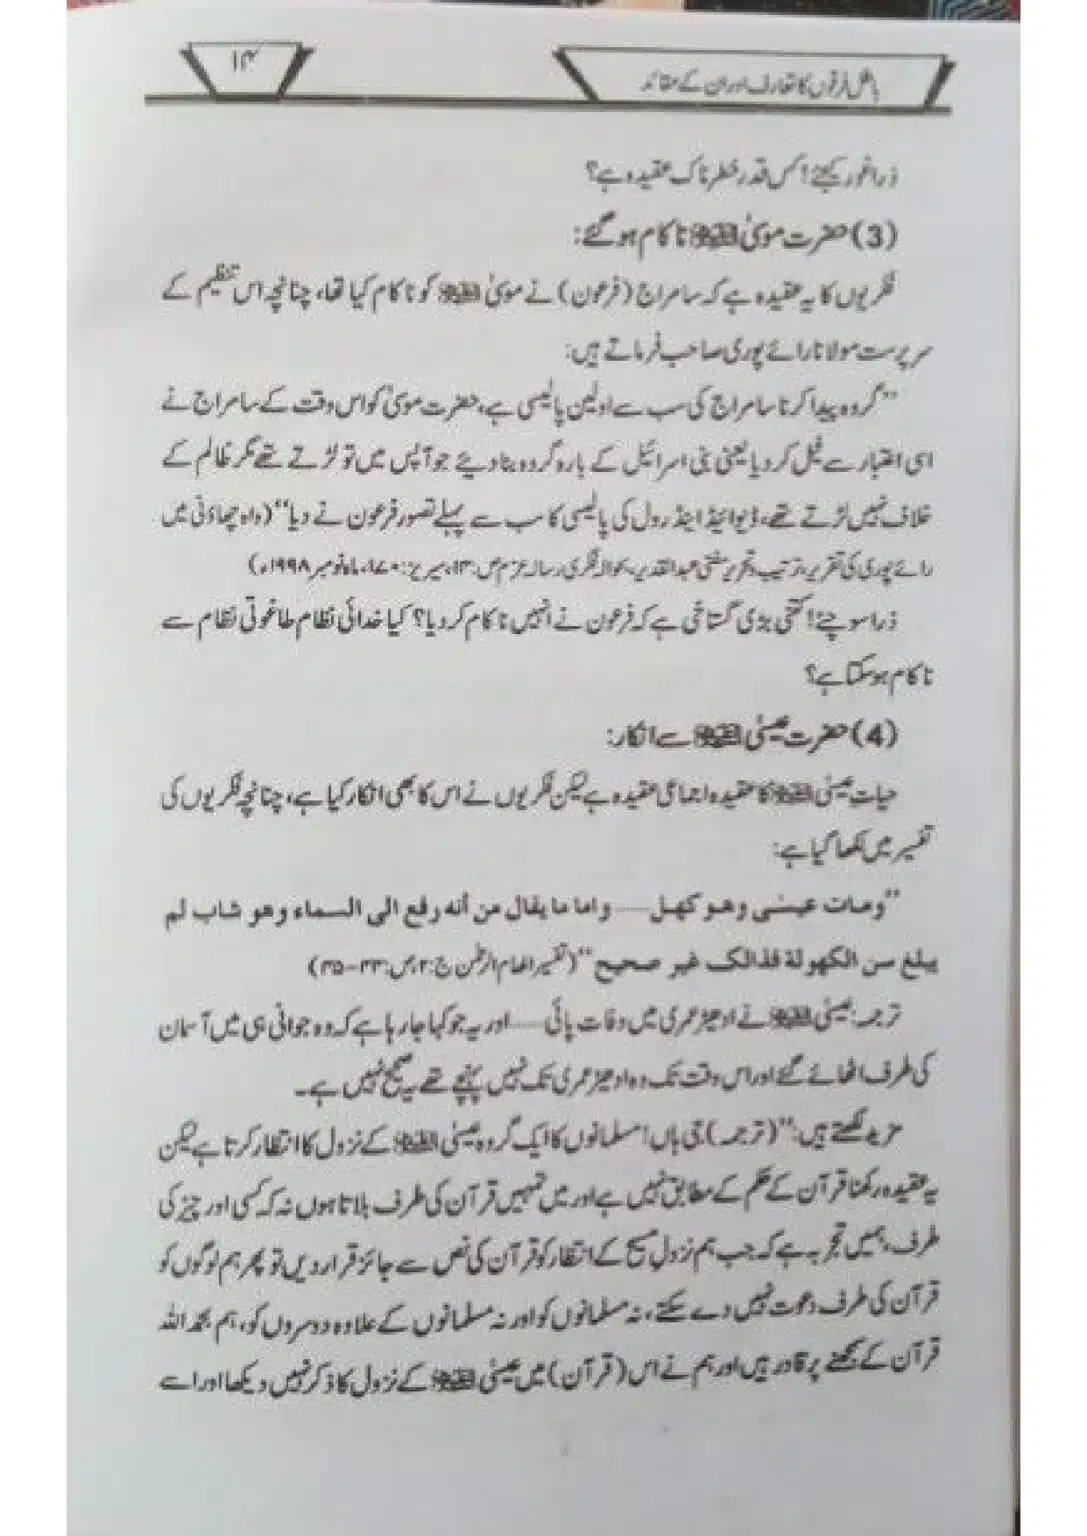 باطل فرقوں کا تعارف اور ان کے عقائد
۱۴
ذرا غور کیجئے! کس قدر خطرناک عقیدہ ہے؟
(3) حضرت موسیٰ علیہ السلام ناکام ہو گئے:
فکریوں کا یہ عقیدہ ہے کہ سامراج (فرعون) نے موسیٰ علیہ السلام کو ناکام کیا تھا، چنانچہ اس تنظیم کے
سرپرست مولانا رائے پوری صاحب فرماتے ہیں:
”گروہ پیدا کرنا سامراج کی سب سے اولین پالیسی ہے، حضرت موسیٰؑ کو اس وقت کے سامراج نے
اسی اعتبار سے فیل کر دیا یعنی بنی اسرائیل کے بارہ گروہ بنا دیئے جو آپس میں تو لڑتے تھے مگر ظالم کے
خلاف نہیں لڑتے تھے، ڈیوائیڈ اینڈ رول کی پالیسی کا سب سے پہلے تصور فرعون نے دیا“ (واہ چھاؤنی میں
رائے پوری کی تقریر، ترتیب وتحریر مفتی عبدالقدیر، بحوالہ فکری رسالہ عزم ص: ۱۳، سیریز: ۱۷۰، ماہ نومبر ۱۹۹۸ء)
ذرا سوچئے! کتنی بڑی گستاخی ہے کہ فرعون نے انہیں ناکام کر دیا؟ کیا خدائی نظام طاغوتی نظام سے
ناکام ہو سکتا ہے؟
(4) حضرت عیسیٰ علیہ السلام سے انکار:
حیات عیسیٰ علیہ السلام کا عقیدہ اجماعی عقیدہ ہے لیکن فکریوں نے اس کا بھی انکار کیا ہے، چنانچہ فکریوں کی
تفسیر میں لکھا گیا ہے:
”ومات عیسٰی وھو کھل۔۔۔۔ واما ما یقال من أنه رفع الی السماء وھو شاب لم
یبلغ سن الکھولة فذالک غیر صحیح“ (تفسیر الھام الرحمٰن ج: ۲، ص: ۳۴-۳۵)
ترجمہ: عیسیٰ علیہ السلام نے ادھیڑ عمری میں وفات پائی۔۔۔۔ اور یہ جو کہا جا رہا ہے کہ وہ جوانی ہی میں آسمان
کی طرف اٹھائے گئے اور اس وقت تک وہ ادھیڑ عمری تک نہیں پہنچے تھے یہ صحیح نہیں ہے۔
مزید لکھتے ہیں: ”(ترجمہ) جی ہاں! مسلمانوں کا ایک گروہ عیسیٰ علیہ السلام کے نزول کا انتظار کرتا ہے لیکن
یہ عقیدہ رکھنا قرآن کے حکم کے مطابق نہیں ہے اور میں تمہیں قرآن کی طرف بلاتا ہوں نہ کہ کسی اور چیز کی
طرف، ہمیں تجربہ ہے کہ جب ہم نزول مسیح کے انتظار کو قرآن کی نص سے جائز قرار دیں تو پھر ہم لوگوں کو
قرآن کی طرف دعوت نہیں دے سکتے، نہ مسلمانوں کو اور نہ مسلمانوں کے علاوہ دوسروں کو، ہم بحمد اللہ
قرآن کے سمجھنے پر قادر ہیں اور ہم نے اس (قرآن) میں عیسیٰ علیہ السلام کے نزول کا ذکر نہیں دیکھا اور اسے